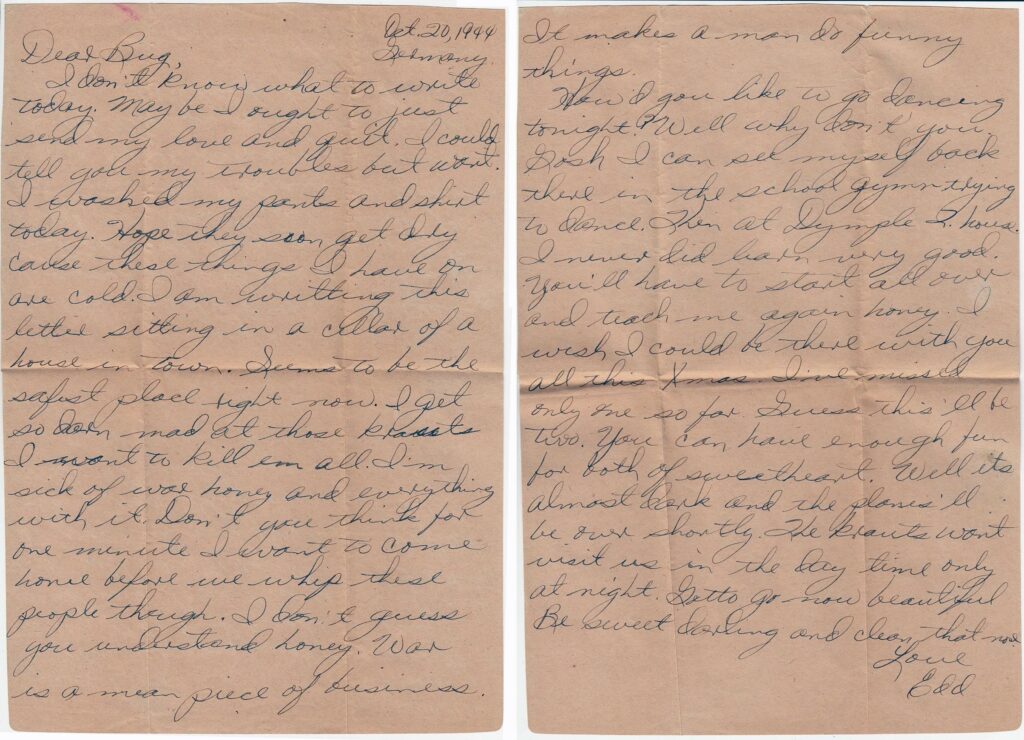 Oct. 20, 1944
Germany.
Dear Bug,
I don't know what to write
today. May be I ought to just
send my love and quit. I could
tell you my troubles but wont.
I washed my pants and shirt
today. Hope they soon get dry
cause these things I have on
are cold. I am writting this
letter sitting in a cellar of a
house in town. Seems to be the
safest place right now. I get
so darn mad at those krauts
I want to kill em all. I'm
sick of war honey and everything
with it. Don't you think for
one minute I want to come
home before we whip these
people though. I don't guess
you understand honey. War
is a mean piece of business.
It makes a man do funny
things.
How'd you like to go dancing
tonight? Well why don't you.
Gosh I can see myself back
there in the school gymn trying
to dance. Then at Dymple house.
I never did learn very good.
You'll have to start all over
and teach me again honey. I
wish I could be there with you
all this Xmas I've missed
only one so far Guess this'll be
two. You can have enough fun
for both of sweetheart. Well its
almost dark and the planes'll
be over shortly. The krauts wont
visit us in the day time only
at night. Gotto go now beautiful
Be sweet darling and clean that
Love
Edd